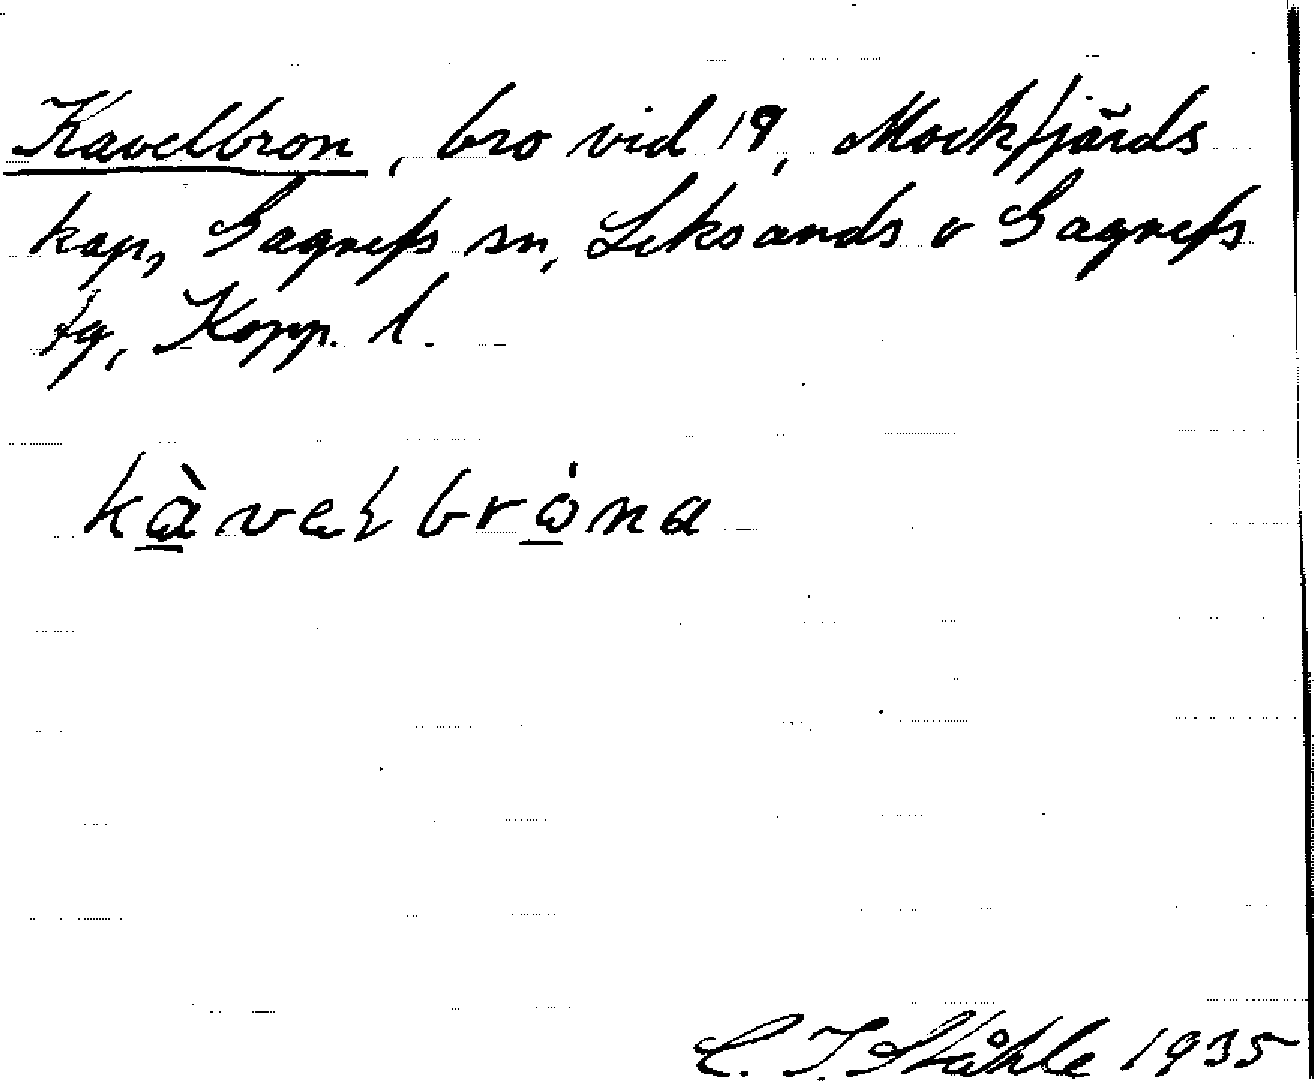 Kavelbron, bro vid 19, Mockfjärds
kap, Gagnefs sn, Leksands o Gagnefs
tg, Kopp. l.
kàvelbrona
C. I. Ståhle 1935